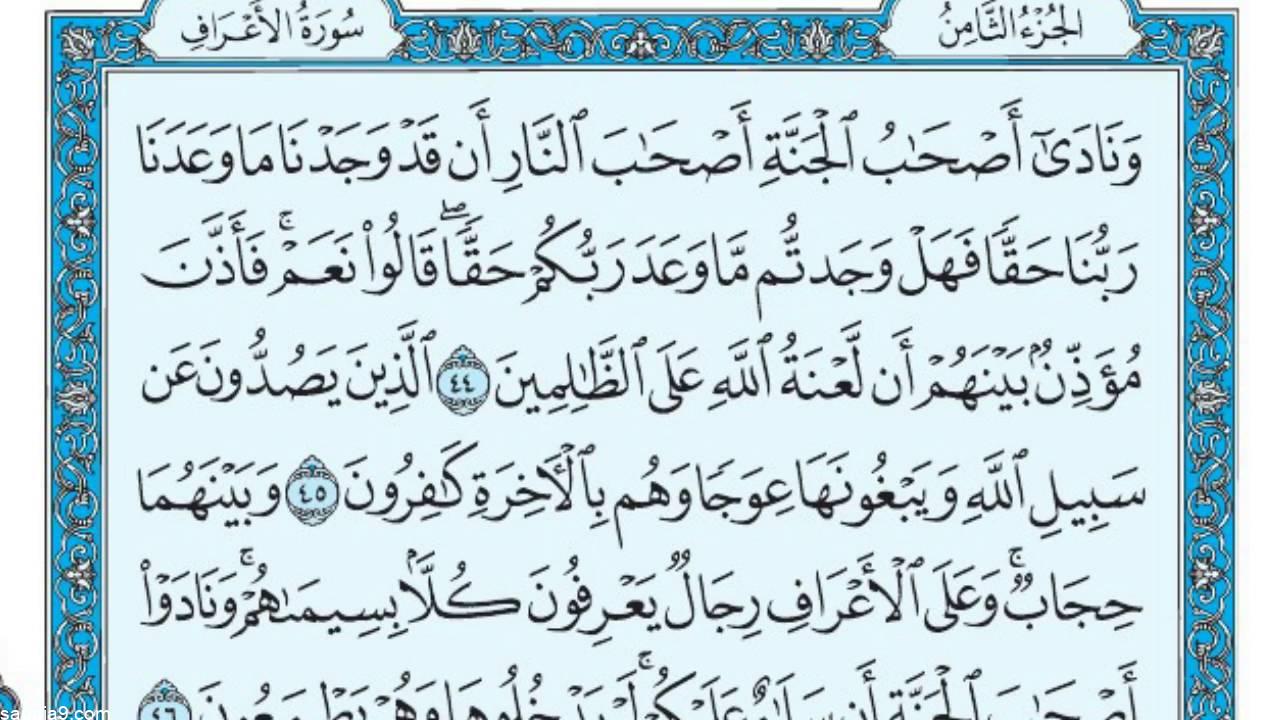 الجُزْءُ الثَّامِنُ
سُورَةُ الأَعْرَافِ
وَنَادَىٰٓ أَصْحَٰبُ ٱلْجَنَّةِ أَصْحَٰبَ ٱلنَّارِ أَن قَدْ وَجَدْنَا مَا وَعَدَنَا
رَبُّنَا حَقًّا فَهَلْ وَجَدتُّم مَّا وَعَدَ رَبُّكُمْ حَقًّاۖ قَالُوا۟ نَعَمْۚ فَأَذَّنَ
مُؤَذِّنٌۢ بَيْنَهُمْ أَن لَّعْنَةُ ٱللَّهِ عَلَى ٱلظَّٰلِمِينَ ٤٤ ٱلَّذِينَ يَصُدُّونَ عَن
سَبِيلِ ٱللَّهِ وَيَبْغُونَهَا عِوَجًا وَهُم بِٱلْـَٔاخِرَةِ كَٰفِرُونَ ٤٥ وَبَيْنَهُمَا
حِجَابٌۚ وَعَلَى ٱلْأَعْرَافِ رِجَالٌ يَعْرِفُونَ كُلًّۢا بِسِيمَىٰهُمْۚ وَنَادَوْا۟
أَصْحَٰبَ ٱلْجَنَّةِ أَن سَلَٰمٌ عَلَيْكُمْۚ لَمْ يَدْخُلُوهَا وَهُمْ يَطْمَعُونَ ٤٦